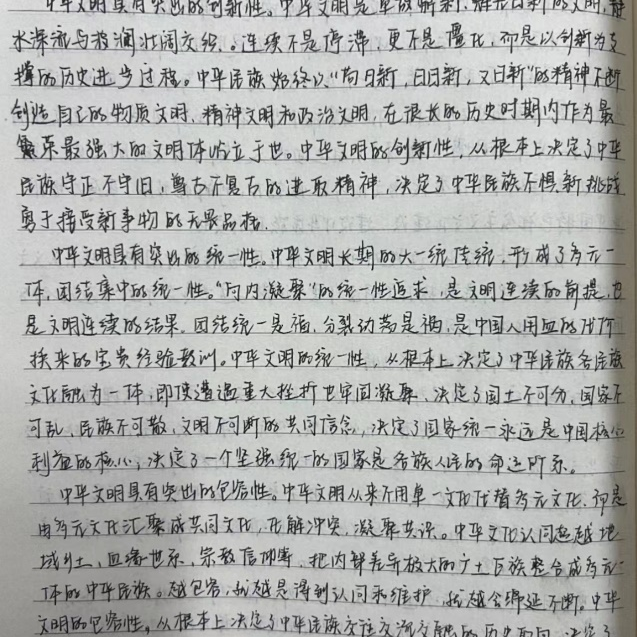 中华文明具有突出的创新性。中华文明是革故鼎新、辉光日新的文明，静
水深流与波澜壮阔交织。连续不是停滞，更不是僵化，而是以创新为支
撑的历史进步过程。中华民族始终以“苟日新，日日新，又日新”的精神不断
创造自己的物质文明、精神文明和政治文明，在很长的历史时期内作为最
繁荣最强大的文明体屹立于世。中华文明的创新性，从根本上决定了中华
民族守正不守旧，尊古不复古的进取精神，决定了中华民族不惧新挑战
勇于接受新事物的无畏品格。
中华文明具有突出的统一性。中华文明长期的大一统传统，形成了多元一
体，团结集中的统一性。“向内凝聚”的统一性追求，是文明连续的前提，也
是文明连续的结果。团结统一是福，分裂动荡是祸，是中国人用血的代价
换来的宝贵经验教训。中华文明的统一性，从根本上决定了中华民族各民族
文化融为一体，即使遭遇重大挫折也牢固凝聚，决定了国土不可分，国家不
可乱，民族不可散，文明不可断的共同信念，决定了国家统一永远是中国核心
利益的核心，决定了一个坚强统一的国家是各族人民的命运所系。
中华文明具有突出的包容性。中华文明从来不用单一文化代替多元文化，而是
由多元文化汇聚成共同文化，化解冲突，凝聚共识。中华文化认同超越地
域乡土，血缘世系，宗教信仰等，把内部差异极大的广土巨族整合成多元一
体的中华民族。越包容，就越是得到认同和维护，就越会绵延不断。中华
文明的包容性，从根本上决定了中华民族交往交流交融的历史取向，决定了